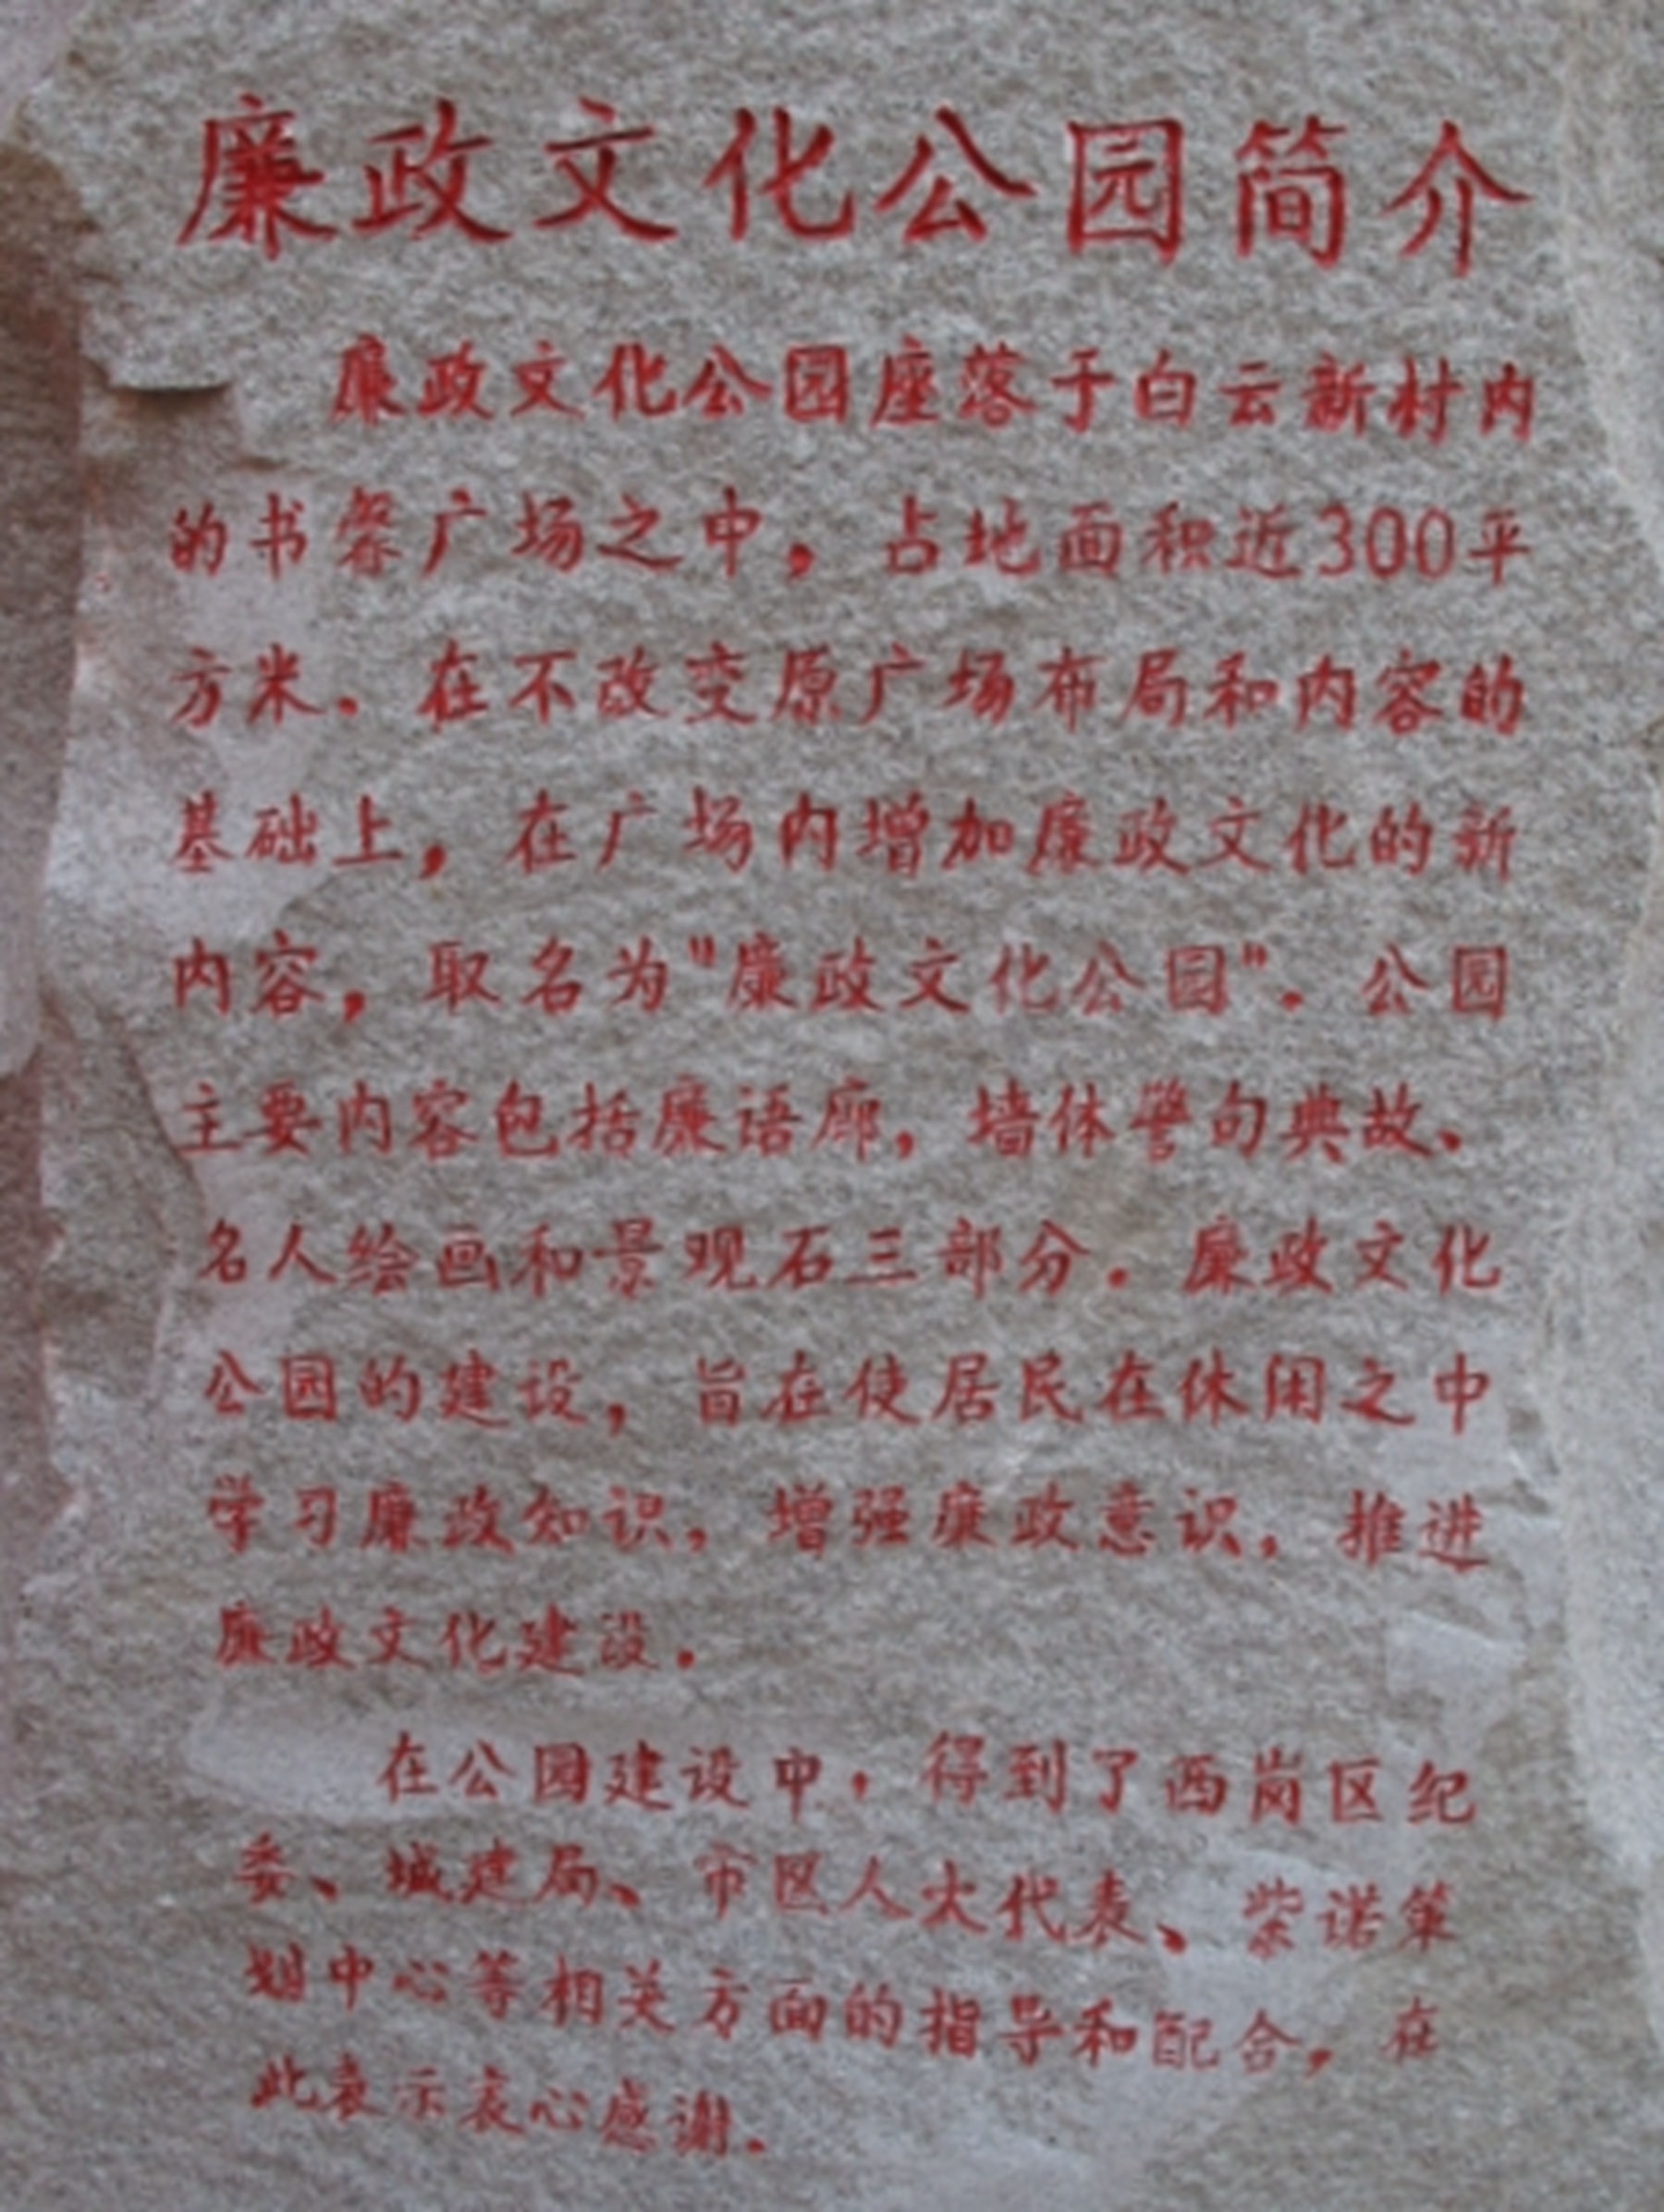 廉政文化公园简介
廉政文化公园座落于白云新村内
的书磬广场之中，占地面积近300平
方米。在不改变原广场布局和内容的
基础上，在广场内增加廉政文化的新
内容，取名为"廉政文化公园"。公园
主要内容包括廉语廊，墙体警句典故、
名人绘画和景观石三部分。廉政文化
公园的建设，旨在使居民在休闲之中
学习廉政知识，增强廉政意识，推进
廉政文化建设。
在公园建设中，得到了西岗区纪
委、城建局、市区人大代表、紫诺策
划中心等相关方面的指导和配合，在
此表示衷心感谢。